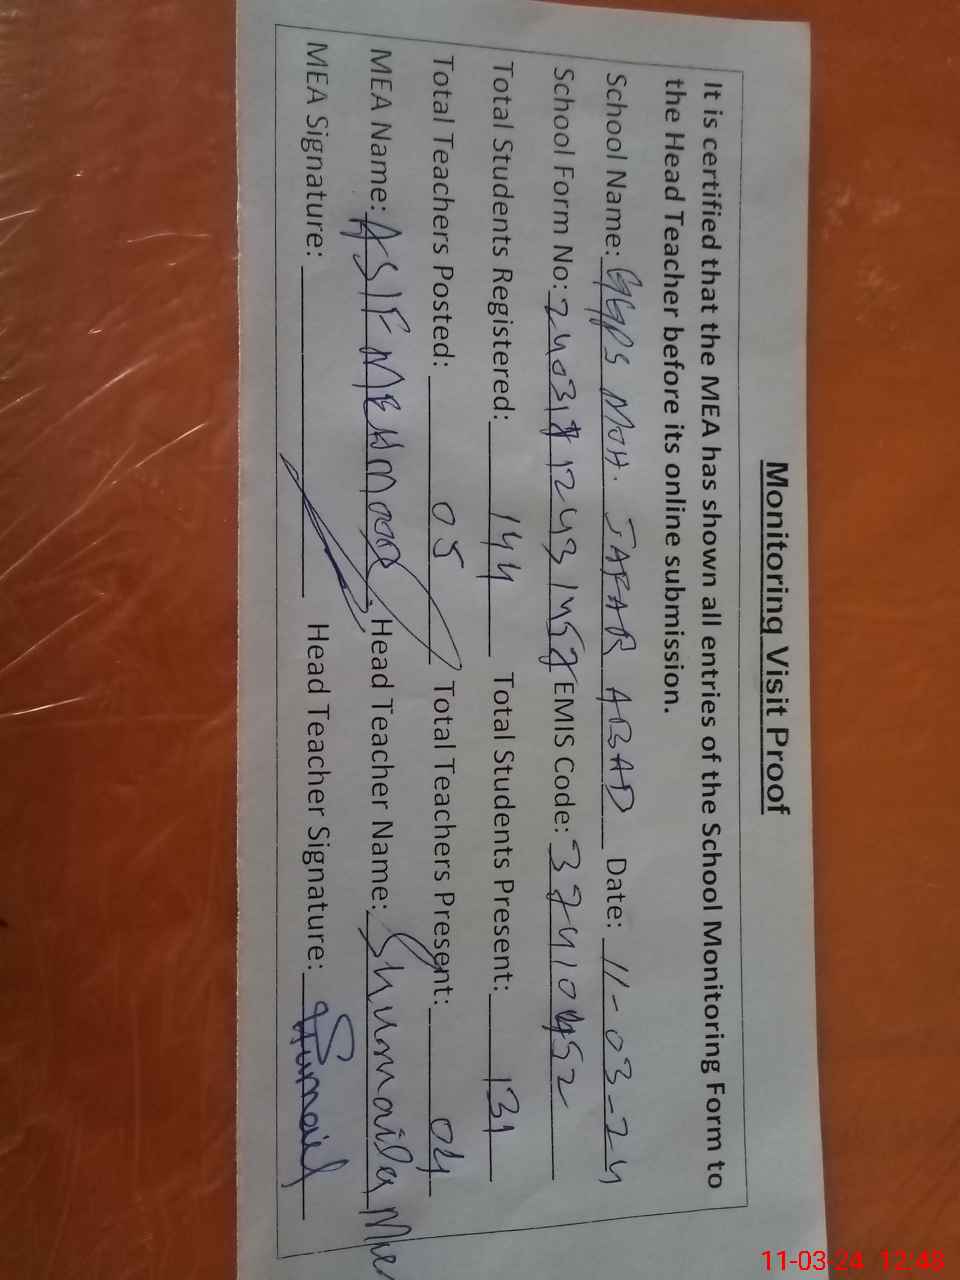 Monitoring Visit Proof
It is certified that the MEA has shown all entries of the School Monitoring Form to
the Head Teacher before its online submission.
School Name: GGPS MOH. JAFAR ABAD Date: 11-03-24
School Form No: EMIS Code: 37410452
Total Students Registered: 144 Total Students Present: 131
Total Teachers Posted: 05 Total Teachers Present: 04
MEA Name: ASIF MEHMOOD Head Teacher Name: Shumaila
MEA Signature: Head Teacher Signature:
11-03-24 12:48